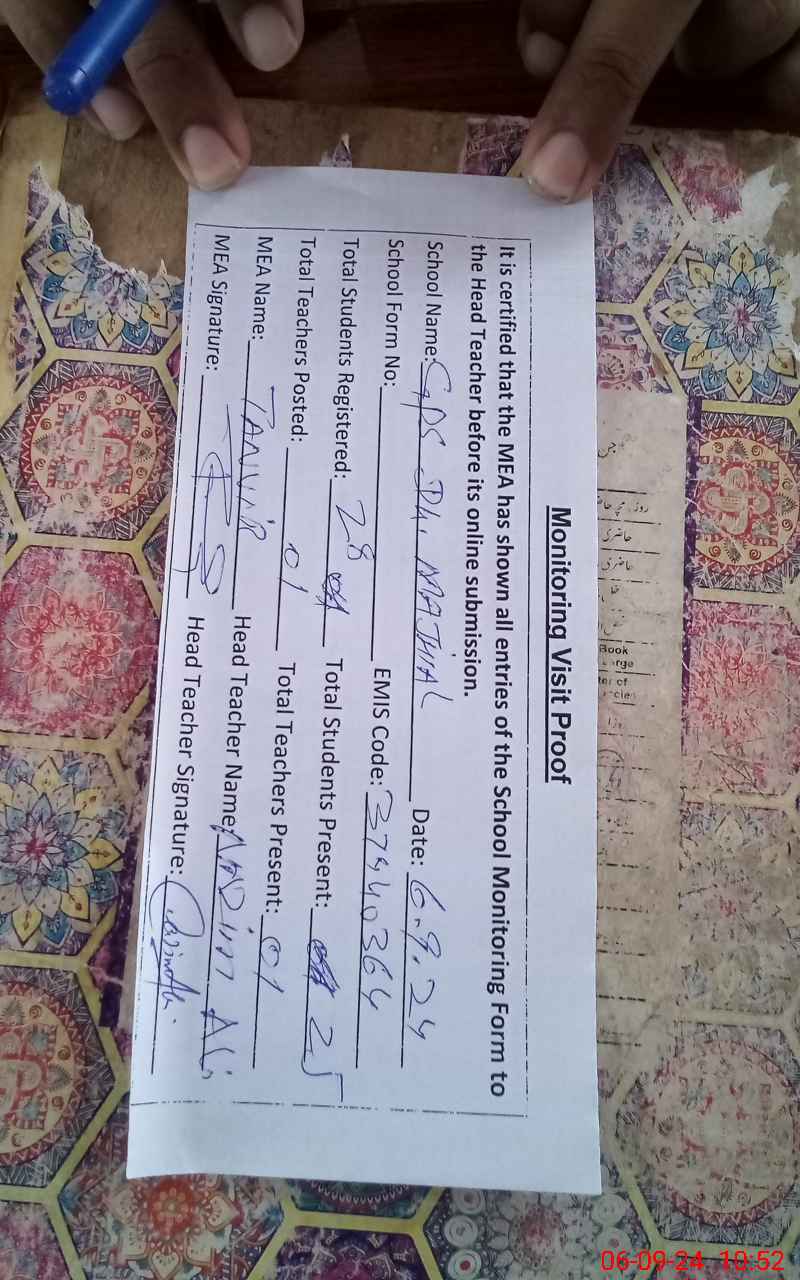 Monitoring Visit Proof
It is certified that the MEA has shown all entries of the School Monitoring Form to
the Head Teacher before its online submission.
School Name: GPS Ph. MAJHAL Date: 6.9.24
School Form No: EMIS Code: 37440364
Total Students Registered: 28 Total Students Present: 25
Total Teachers Posted: 01 Total Teachers Present: 01
MEA Name: TANVIR Head Teacher Name: NADIM ALi
MEA Signature: Head Teacher Signature:
حاضری
حاضری
Book
06-09-24 10:52